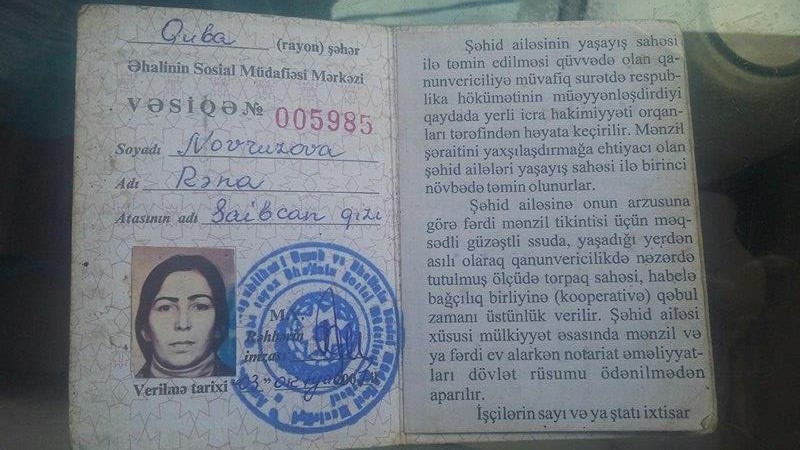 Quba (rayon) şəhər
Əhalinin Sosial Müdafiəsi Mərkəzi
VƏSİQƏ № 005985
Soyadı Novruzova
Adı Rəna
Atasının adı Saibcan qızı
M.Y.
Rəhbərin
imzası
Verilmə tarixi "03"
Şəhid ailəsinin yaşayış sahəsi
ilə təmin edilməsi qüvvədə olan qa-
nunvericiliyə müvafiq surətdə respub-
lika hökümətinin müəyyənləşdirdiyi
qaydada yerli icra hakimiyyəti orqan-
ları tərəfindən həyata keçirilir. Mənzil
şəraitini yaxşılaşdırmağa ehtiyacı olan
şəhid ailələri yaşayış sahəsi ilə birinci
növbədə təmin olunurlar.
Şəhid ailəsinə onun arzusuna
görə fərdi mənzil tikintisi üçün məq-
sədli güzəştli ssuda, yaşadığı yerdən
asılı olaraq qanunvericilikdə nəzərdə
tutulmuş ölçüdə torpaq sahəsi, habelə
bağçılıq birliyinə (kooperativə) qəbul
zamanı üstünlük verilir. Şəhid ailəsi
xüsusi mülkiyyət əsasında mənzil və
ya fərdi ev alarkən notariat əməliyyat-
ları dövlət rüsumu ödənilmədən
aparılır.
İşçilərin sayı və ya ştatı ixtisar